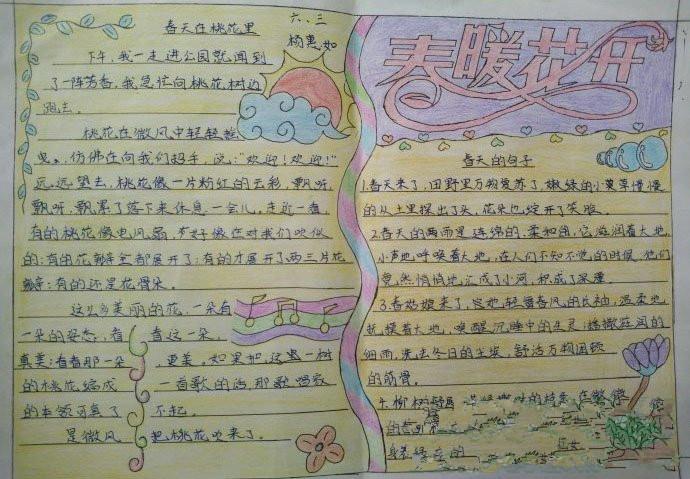 春天在桃花里
六、三
杨惠如
下午，我一走进公园就闻到
了一阵芳香，我急忙向桃花树边
跑去。
桃花在微风中轻轻摇
曳。仿佛在向我们招手，说："欢迎！欢迎！"
远远望去，桃花像一片粉红的云彩，飘呀，
飘呀，飘累了落下来休息一会儿。走近一看，
有的桃花像电风扇，好像在对我们吹似
的；有的花瓣全都展开了；有的才展开了两三片花
瓣；有的还是花骨朵。
这么多美丽的花，一朵有
一朵的姿态，看看这一朵，
真美；看看那一朵，更美。如果把这里一树
的桃花编成一首歌的话，那歌唱家
的本领可真了不起。
是微风把桃花吹来了。
春暖花开
春天的句子
1.春天来了，田野里万物复苏了，嫩绿的小草慢慢
的从土里探出了头，花朵也绽开了笑脸。
2.春天的雨雨是连绵的，柔和的，它滋润着大地，
小声地呼唤着大地，在人们不知不觉的时候，他们
竟然悄悄地汇成了小河，积成了深潭。
3.春姑娘来了，宛她轻舞春风的长袖，温柔地
抚摸着大地，唤醒沉睡中的生灵；播撒滋润的
细雨，洗去冬日的尘埃，舒活万物困顿
的筋骨。
4.柳树
的